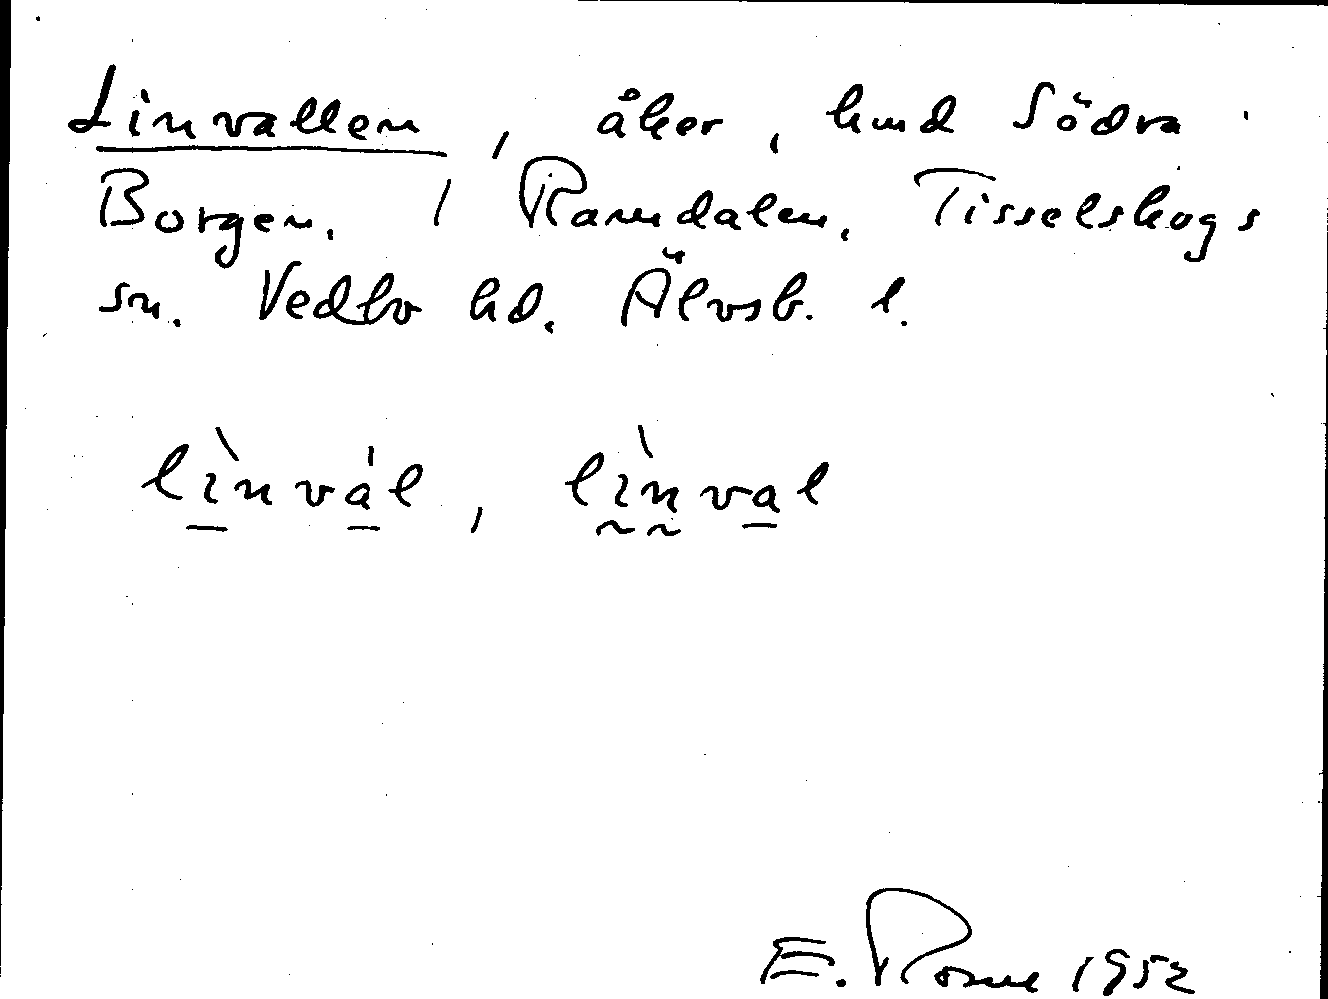 Linvallen, åker, hmd Södra
Borgen. / Ramdalen. Tisselskogs
sn. Vedbo hd. Älvsb. l.
lìnvál, lìnval
E. Rosne 1952